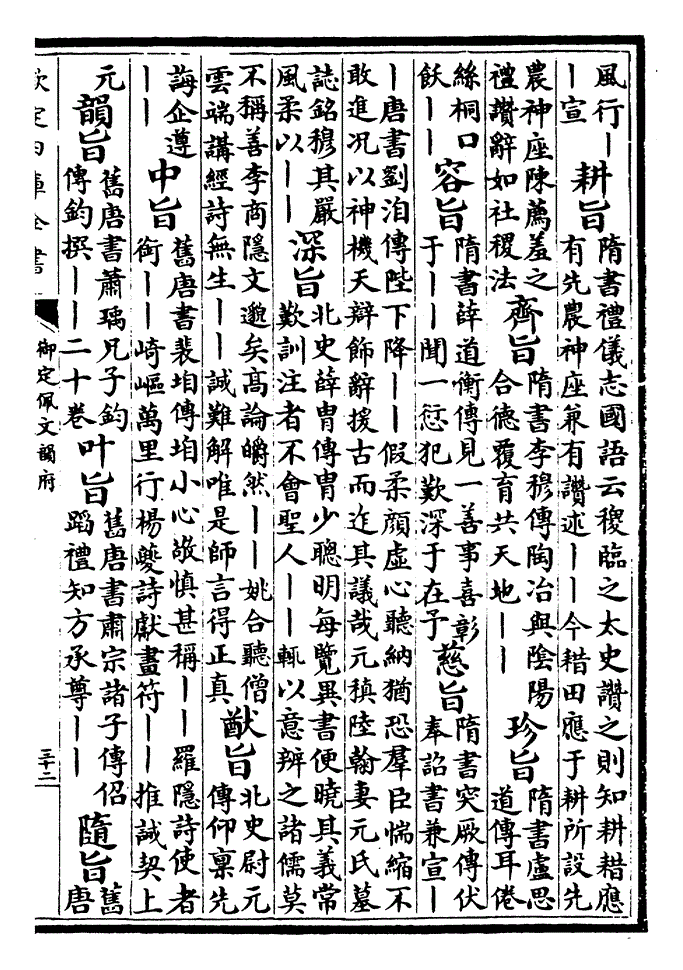 風行｜｜宣耕旨隋書禮儀志國語云稷臨之太史讚之則知耕耤應有先農神座兼有讚述｜｜今耤田應于耕所設先
農神座陳薦羞之禮讚辭如社稷法齊旨隋書李穆傳陶冶與陰陽合德覆育共天地｜｜珍旨隋書盧思道傳耳倦
絲桐口飫｜｜容旨隋書薛道衡傳見一善事喜彰于｜｜聞一愆犯歎深于在予慈旨隋書突厥傳伏奉詔書兼宣｜
｜唐書劉洎傳陛下降｜｜假柔顏虛心聽納猶恐羣臣惴縮不敢進況以神機天辯飾辭援古而迮其議哉元稹陸翰妻元氏墓
誌銘穆其嚴風柔以｜｜深旨北史薛胄傳胄少聰明每覽異書便曉其義常歎訓注者不會聖人｜｜輒以意辨之諸儒莫
不稱善李商隱文邈矣高論皭然｜｜姚合聽僧雲端講經詩無生｜｜誠難解唯是師言得正真猷旨北史尉元傳仰稟先
誨企遵｜｜中旨舊唐書裴垍傳垍小心敬慎甚稱｜｜羅隱詩使者銜｜｜崎嶇萬里行楊夔詩獻畫符｜｜推誠契上
元韻旨舊唐書蕭瑀兄子鈞傳鈞撰｜｜二十卷叶旨舊唐書肅宗諸子傳佋蹈禮知方承尊｜｜隨旨舊唐
欽定四庫全書
御定佩文韻府
三十二